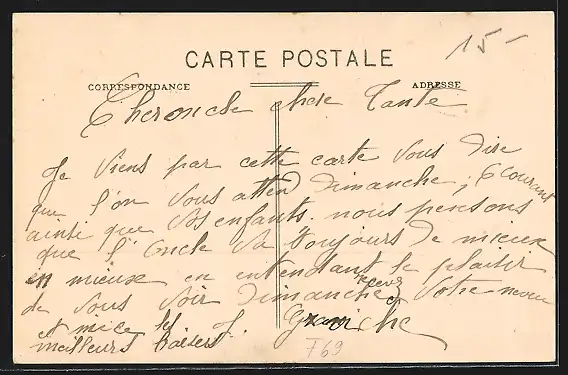 15-
CARTE POSTALE
CORRESPONDANCE
ADRESSE
Cher oncle chere Tante
Je viens par cette carte vous dire
que l'on vous attend Dimanche, courant
ainsi que vos enfants. nous pensons
que l'oncle va toujours de mieux
en mieux en entendant le plaisir
de vous voir Dimanche recevez votre neveu
et niece les J.
meilleurs baisers
769